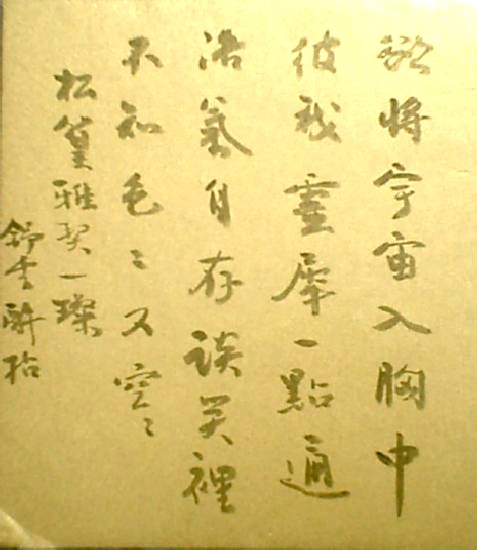 欲將宇宙入胸中
彼我靈犀一點通
浩氣自存談笑裡
不知色〻又空〻
松篁雅契一璨
舒雲醉拈